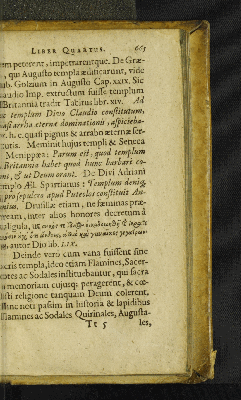 LIBER QUARTUS. 665
um peterent, impetrarintque. De Græ-
, qui Augusto templa ædificarunt, vide
ub. Golzium in Augusto Cap. XXIX. Sic
laudio Imp. extructum fuisse templum
Britannia tradit Tacitus lbr. XIV. Ad
templum Divo Claudio constitutum,
asi arx æternæ dominationis, aspicieba-
r. h. e. quasi pignus & arrabo æternæ ser-
tutis. Meminit hujus templi & Seneca
Menippæa: Parum est, quod templum
Britannia habet quod hunc barbari co-
unt, & ut Deum orant. De Divi Adriani
emplo Æl. Spartianus: Templum deniq,
pro sepulcro apud Puteolos constituit An-
ninus. Drusillæ etiam, ne fœminas præ-
ream, inter alios honores decretum à
aligula,
, autor Dio lib. LIX.
Deinde vero cum vana fuissent sine
acris templa, ideo etiam Flamines, Sacer-
otes ac Sodales instituebantur, qui sacra
memoriam cujusq; peragerent, & cœ-
lesti religione tanquam Deum colerent,
Hinc noti passim in historia & lapidibus
Flamines ac Sodales Quirinales, Augusta-
Tt 5 les,